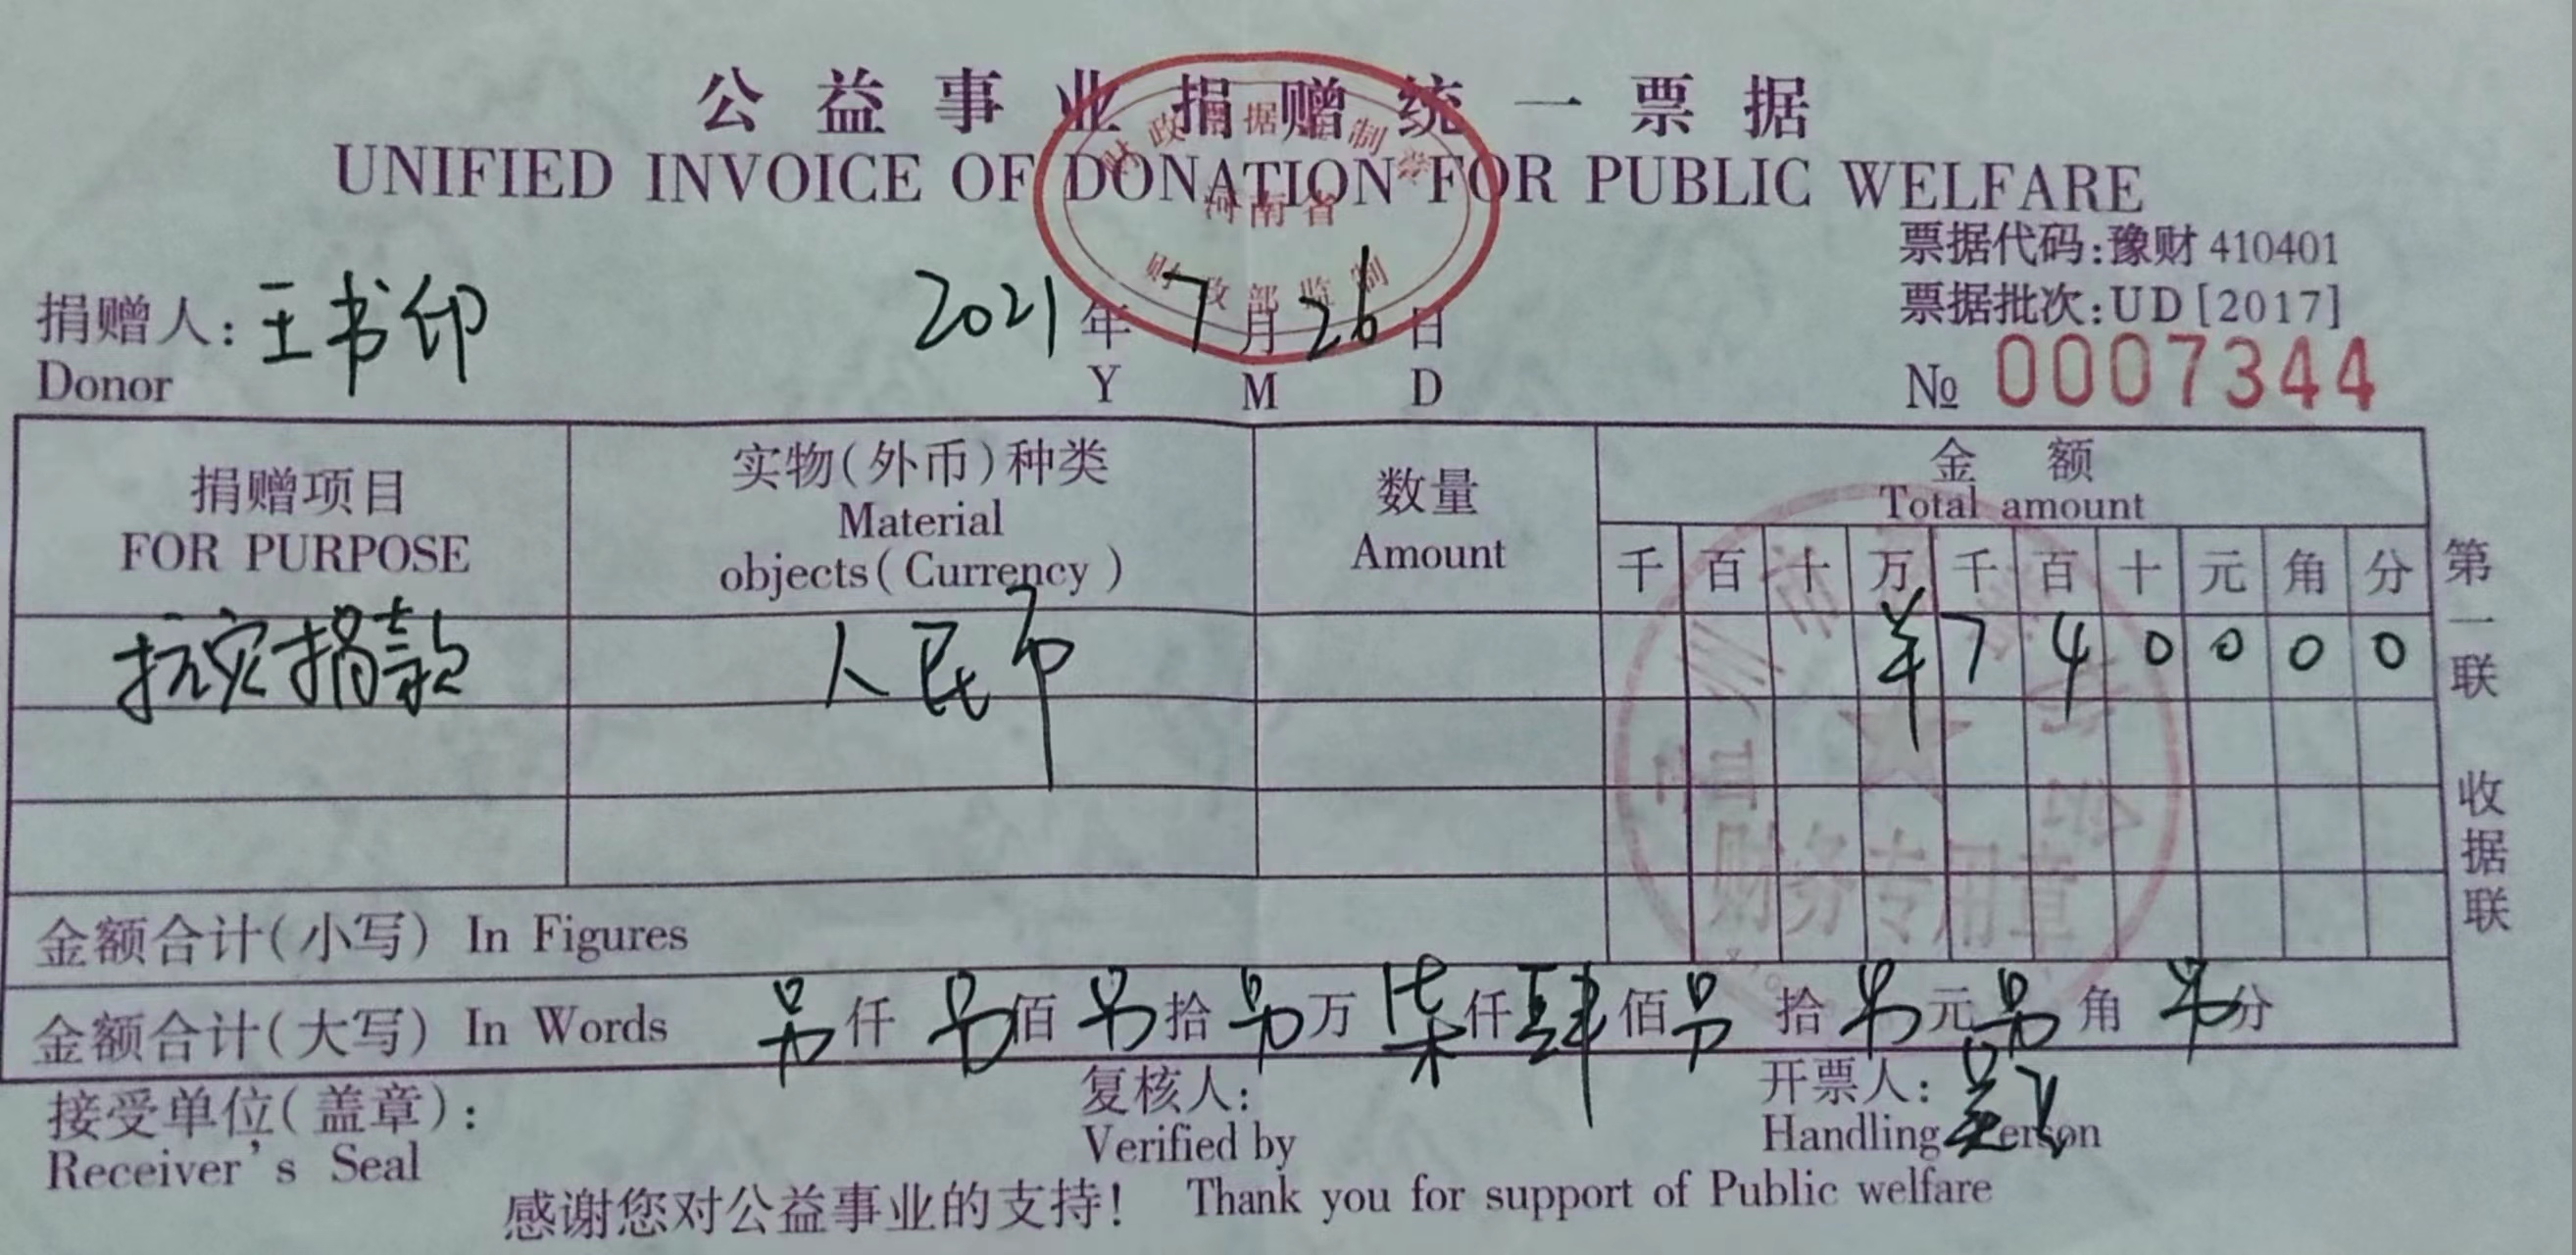 公益事业捐赠统一票据
UNIFIED INVOICE OF DONATION FOR PUBLIC WELFARE
财政票据监制章
河南省
财政部监制
票据代码:豫财 410401
票据批次:UD[2017]
№ 0007344
捐赠人: 王书印
Donor
2021 年 7 月 26 日
Y M D
捐赠项目
FOR PURPOSE
实物(外币)种类
Material
objects(Currency)
数量
Amount
金 额
Total amount
千 百 十 万 千 百 十 元 角 分
抗灾捐款 人民币 ¥ 7 4 0 0 0 0
财务专用章
金额合计(小写) In Figures
金额合计(大写) In Words 另仟 另佰 另拾 另万 柒仟 肆佰 另拾 另元 另角 另分
接受单位(盖章):
Receiver's Seal
复核人:
Verified by
开票人:
Handling Person
感谢您对公益事业的支持! Thank you for support of Public welfare
第一联 收据联